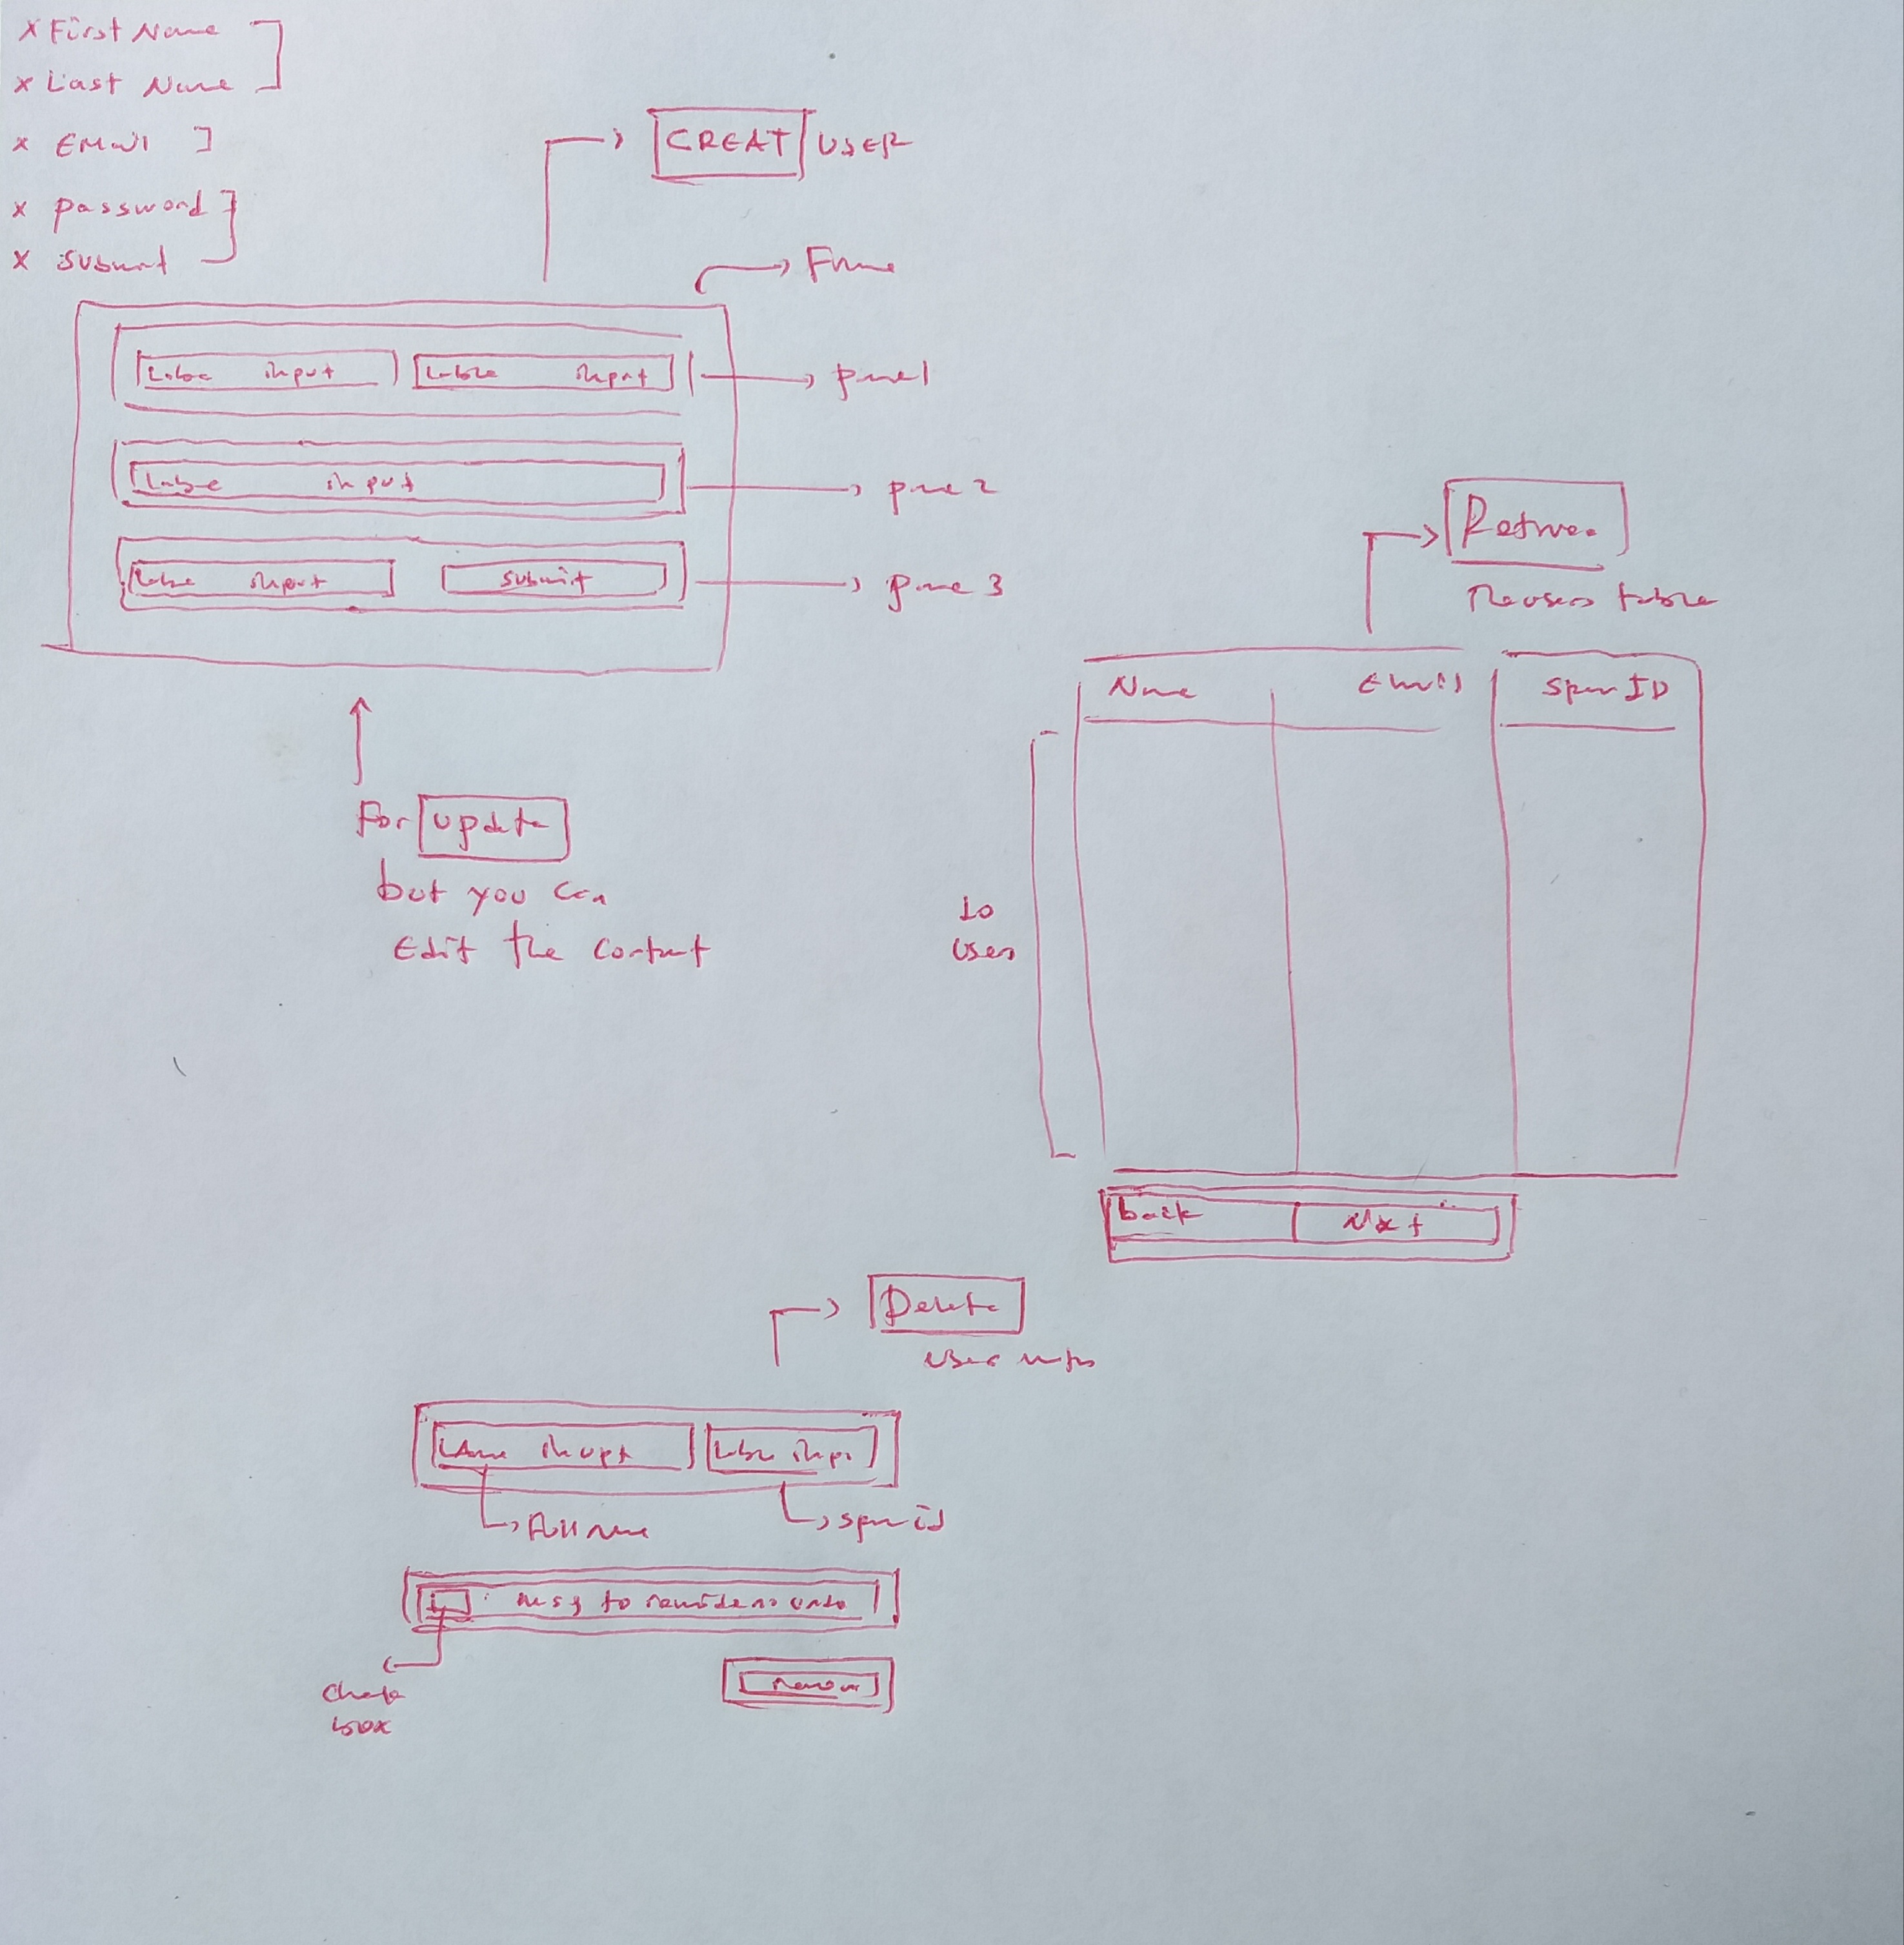 x First Name
x Last Name
x EMail
x password
x submit
CREAT USER
Frame
Lable input Lable input
panel
Lable input
pane 2
Lable input submit
pane 3
For update
but you can
Edit the content
Retrive
the users table
Name Email Span ID
10
users
back Next
Delete
user
input Lable
Full name
span id
msg to no undo
Check
box